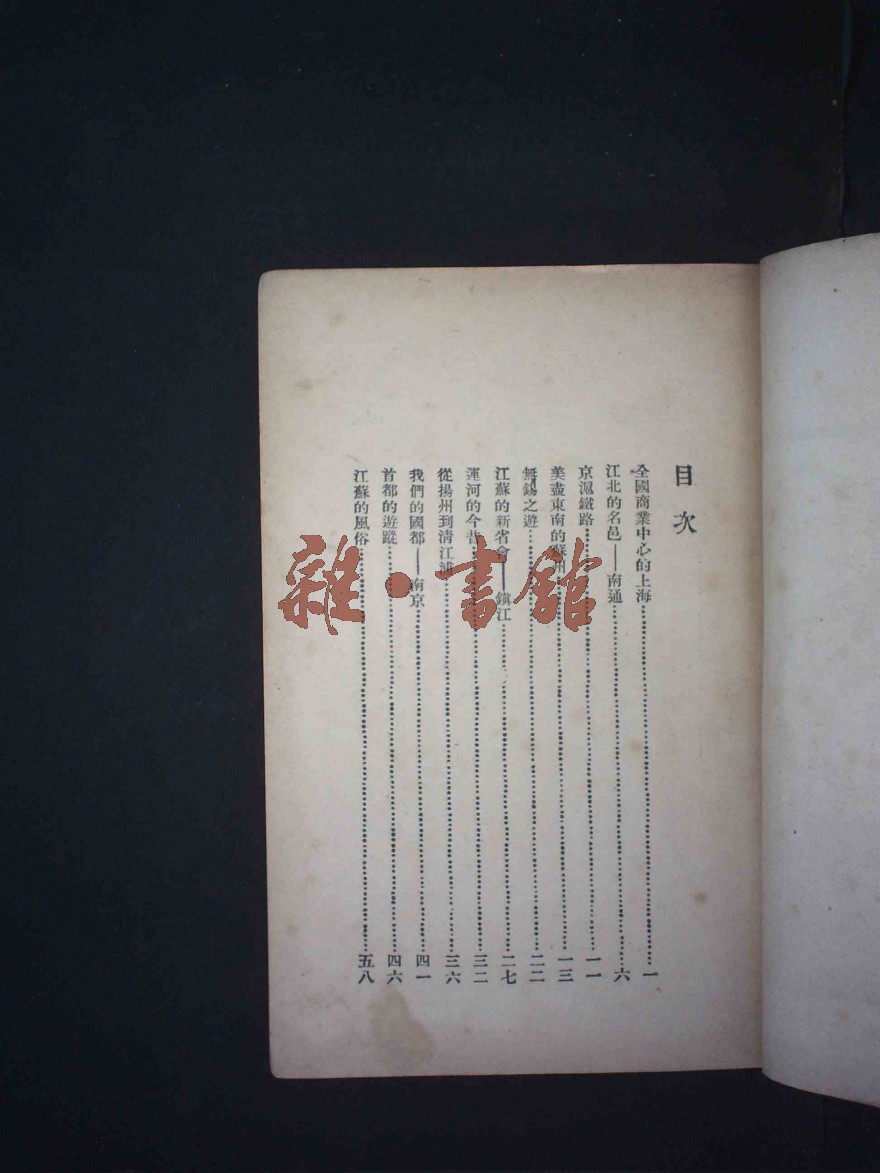 目次
全國商業中心的上海……一
江北的名邑——南通……六
京滬鐵路……一一
美盡東南的蘇州……一三
無錫之遊……二二
江蘇的新省會——鎮江……二七
運河的今昔……三二
從揚州到清江浦……三六
我們的國都——南京……四一
首都的遊蹤……四六
江蘇的風俗……五八
雜·書館